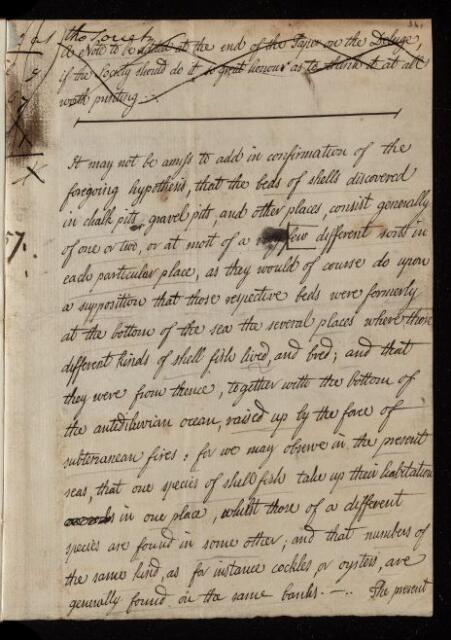 A Note to be added at the end of the Paper on the Deluge,
if the Society should do it so great honour as to think it at all
worth printing.
It may not be amiss to add in confirmation of the
foregoing hypothesis, that the beds of shells discovered
in chalk pits, gravel pits, and other places, consist generally
of one or two, or at most of a very few different sorts in
each particular place, as they would of course do upon
a supposition that those respective beds were formerly
at the bottom of the sea the several places where those
different kinds of shell fish lived, and bred; and that
they were from thence, together with the bottom of
the antediluvian ocean, raised up by the force of
subterranean fires: for we may observe in the present
seas, that one species of shell fish take up their habitation
in one place, whilst those of a different
species are found in some other; and that numbers of
the same kind, as for instance cockles, or oysters, are
generally found on the same banks. —. The present